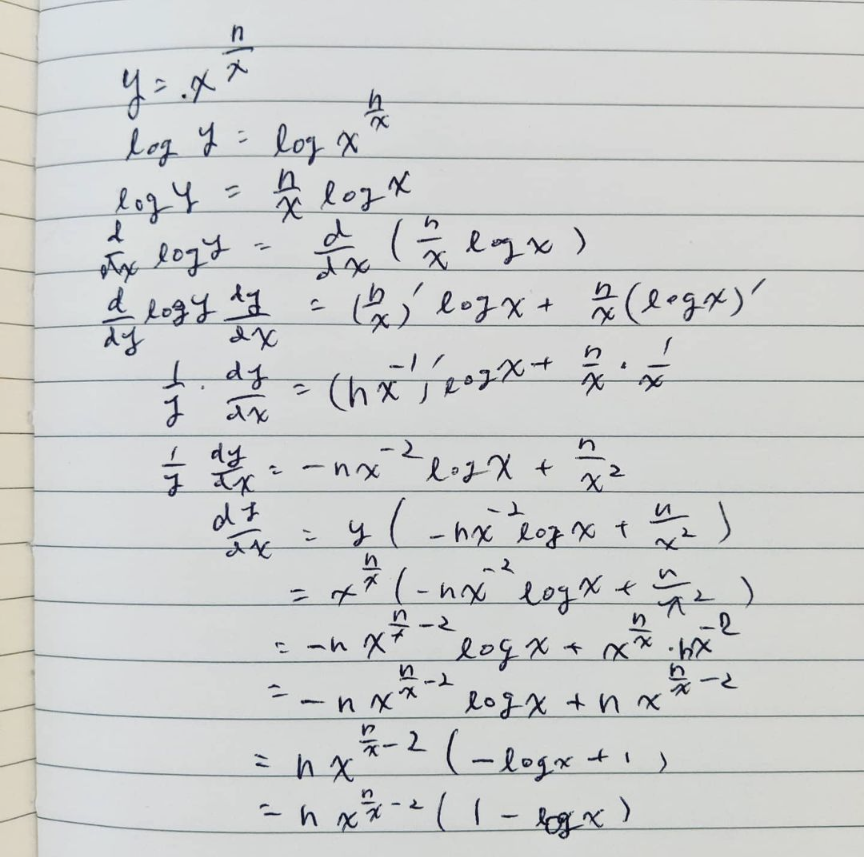 y = x^{\frac{n}{x}}
log y = log x^{\frac{n}{x}}
log y = \frac{n}{x} log x
\frac{d}{dx} log y = \frac{d}{dx} ( \frac{n}{x} log x )
\frac{d}{dy} log y \frac{dy}{dx} = (\frac{n}{x})' log x + \frac{n}{x} (log x)'
\frac{1}{y} . \frac{dy}{dx} = (n x^{-1})' log x + \frac{n}{x} . \frac{1}{x}
\frac{1}{y} \frac{dy}{dx} = -n x^{-2} log x + \frac{n}{x^2}
\frac{dy}{dx} = y ( -n x^{-2} log x + \frac{n}{x^2} )
= x^{\frac{n}{x}} ( -n x^{-2} log x + \frac{n}{x^2} )
= -n x^{\frac{n}{x} - 2} log x + x^{\frac{n}{x}} . n x^{-2}
= -n x^{\frac{n}{x} - 2} log x + n x^{\frac{n}{x} - 2}
= n x^{\frac{n}{x} - 2} ( -log x + 1 )
= n x^{\frac{n}{x} - 2} ( 1 - log x )